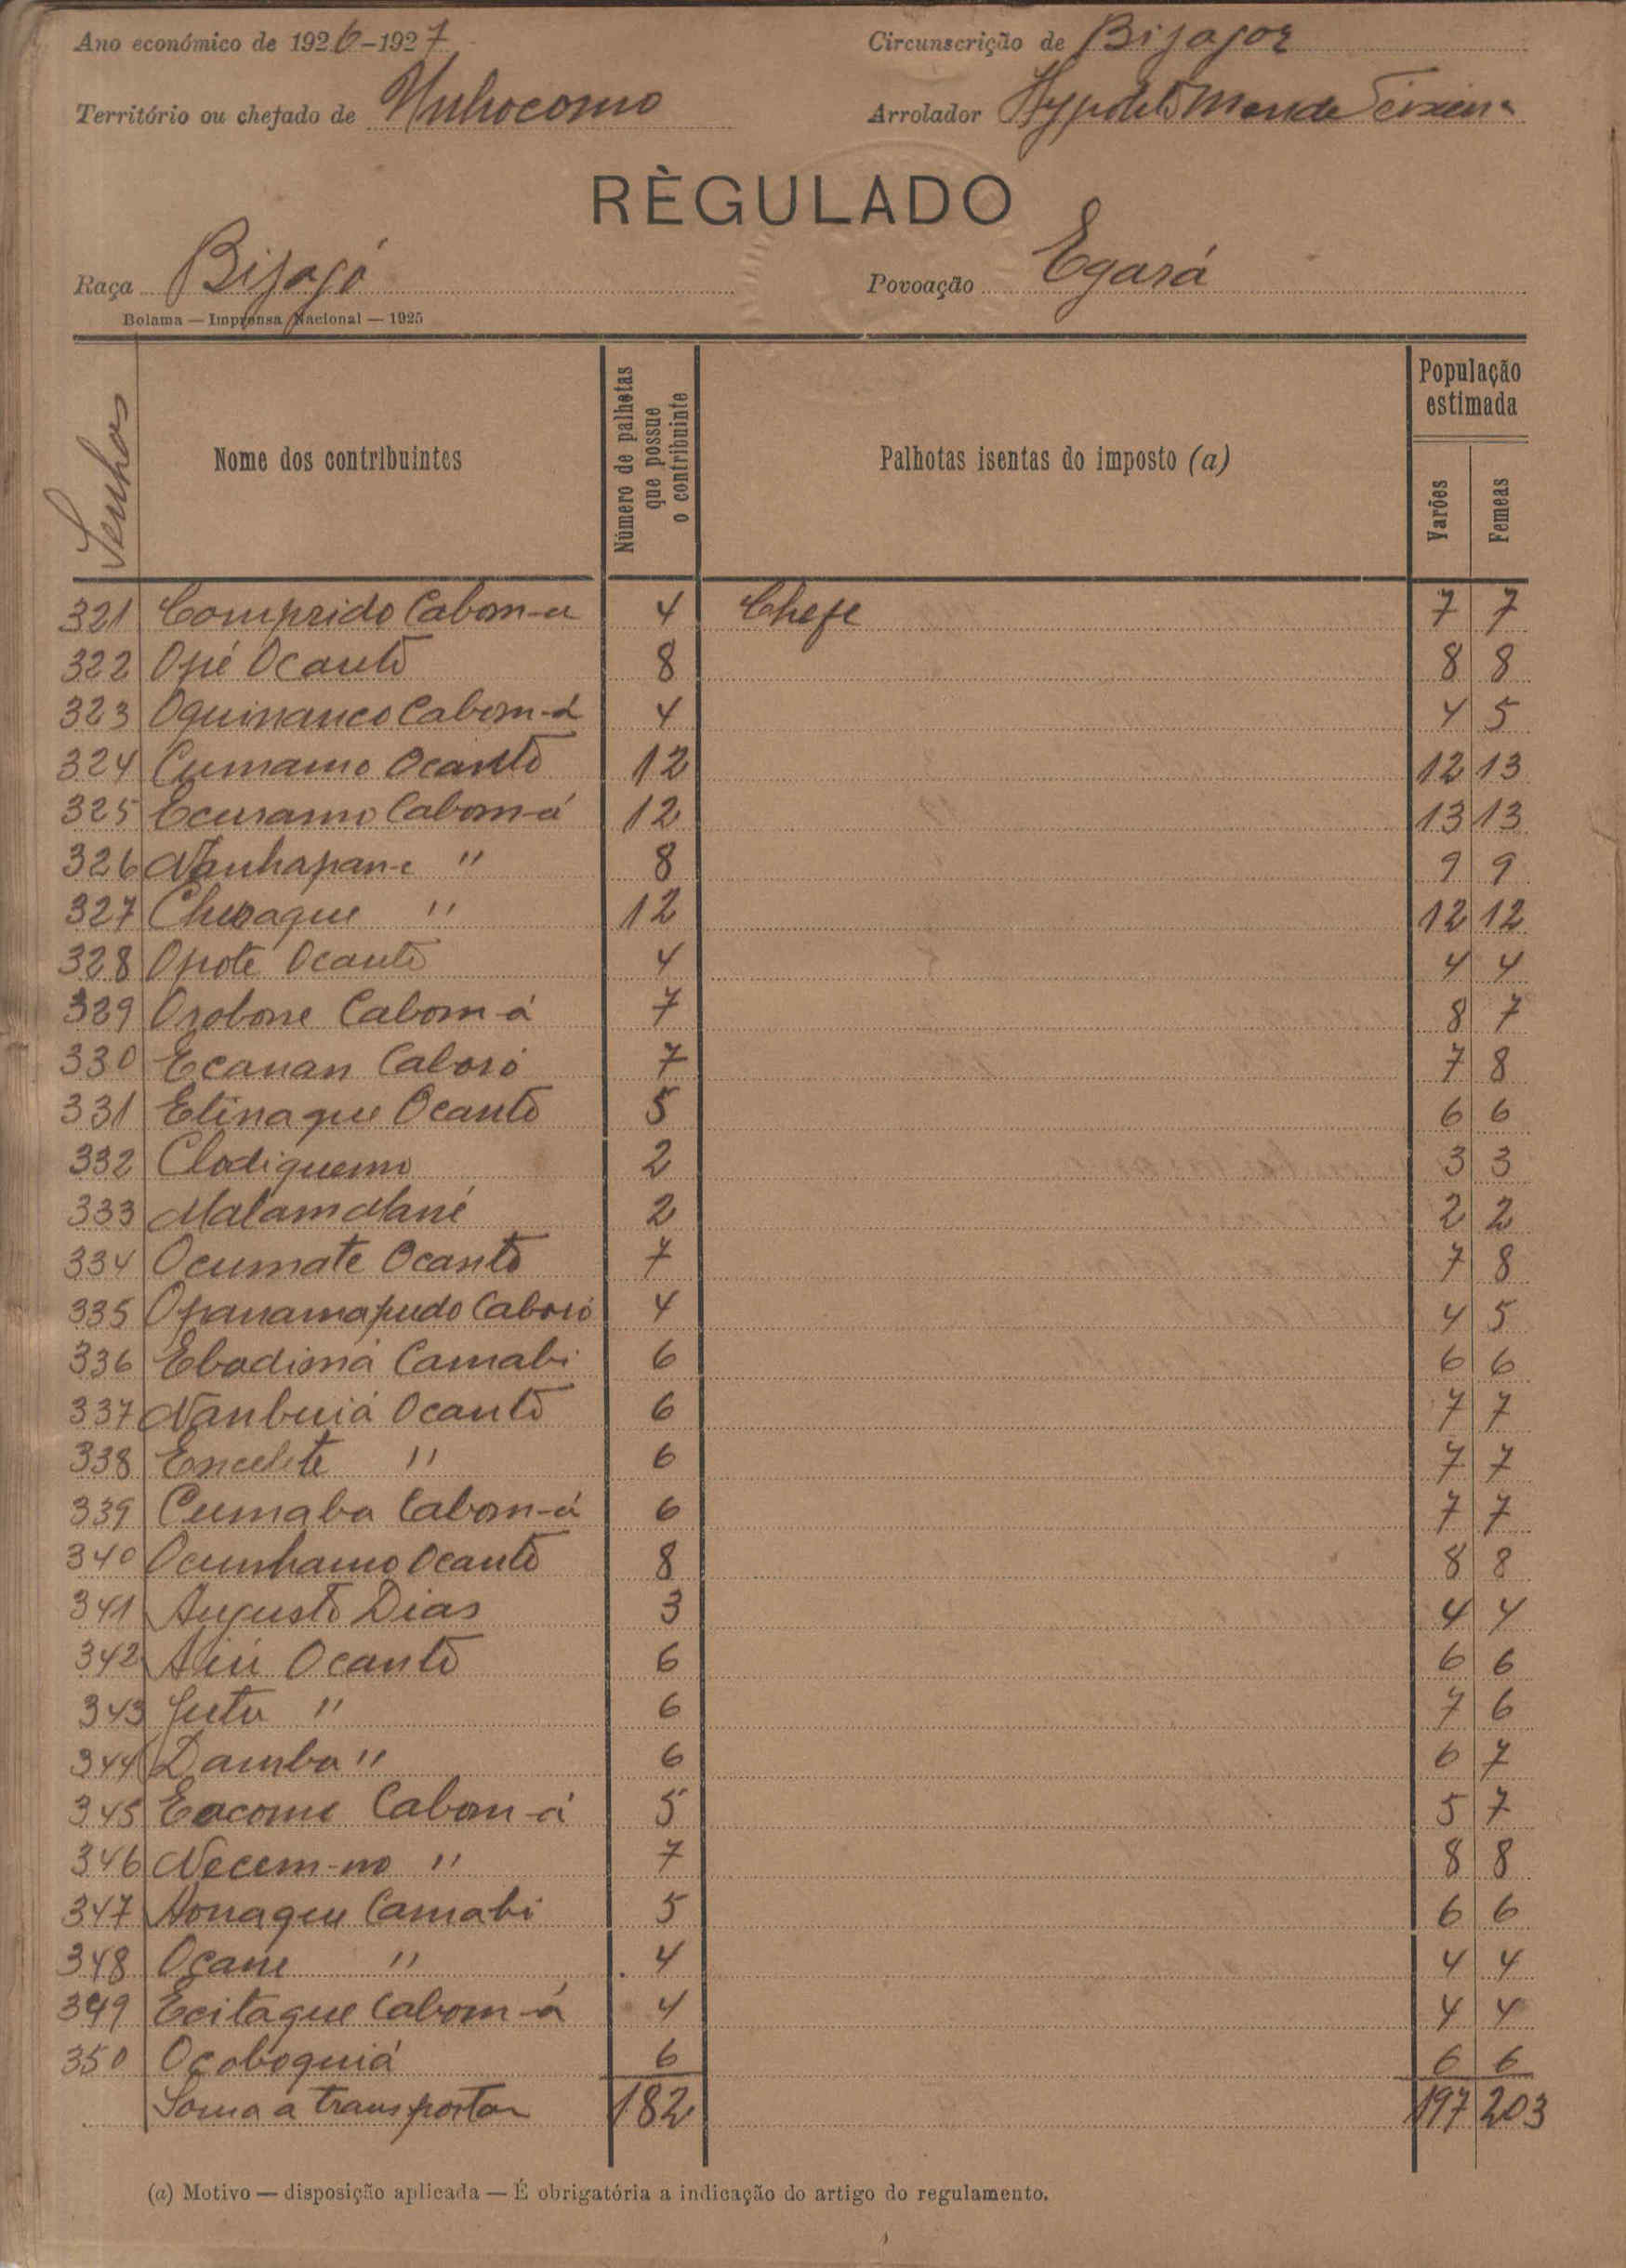 Ano económico de 1926-1927 Circunscrição de Bijagoz
Território ou chefado de Unhocomo Arrolador Hypolito Mende Teixeira
RÈGULADO
Raça Bijagó Povoação Egará
Bolama — Imprensa Nacional — 1925
Senhas Nome dos contribuintes Número de palhetas que possue o contribuinte Palhotas isentas do imposto (a) População estimada Varões Femeas
321 Comprido Cabom-a 4 Chefe 7 7
322 Opé Ocantò 8 8 8
323 Oquinanco Cabom-á 4 4 5
324 Cumamo Ocantò 12 12 13
325 Ecuramo Cabom-á 12 13 13
326 Nanhapan-e " 8 9 9
327 Cheraque " 12 12 12
328 Opoté Ocantò 4 4 4
329 Orobone Cabom-á 7 8 7
330 Ecanan Caboró 7 7 8
331 Etinaque Ocantò 5 6 6
332 Clodiquemo 2 3 3
333 Malam Mané 2 2 2
334 Ocumate Ocantò 7 7 8
335 Opanamapudo Caboró 4 4 5
336 Ebadimá Camabi 6 6 6
337 Nanbuiá Ocantò 6 7 7
338 Enculete " 6 7 7
339 Cumaba Cabom-á 6 7 7
340 Ocunhamo Ocantò 8 8 8
341 Augusto Dias 3 4 4
342 Ocantò 6 6 6
343 Juta " 6 7 6
344 Damba " 6 6 7
345 Eacome Cabom-á 5 5 7
346 Necem-no " 7 8 8
347 Aonaque Camabi 5 6 6
348 Oçane " 4 4 4
349 Ecitaque Cabom-á 4 4 4
350 Oçoboquiá 6 6 6
Soma a transportar 182 197 203
(a) Motivo — disposição aplicada — É obrigatória a indicação do artigo do regulamento.